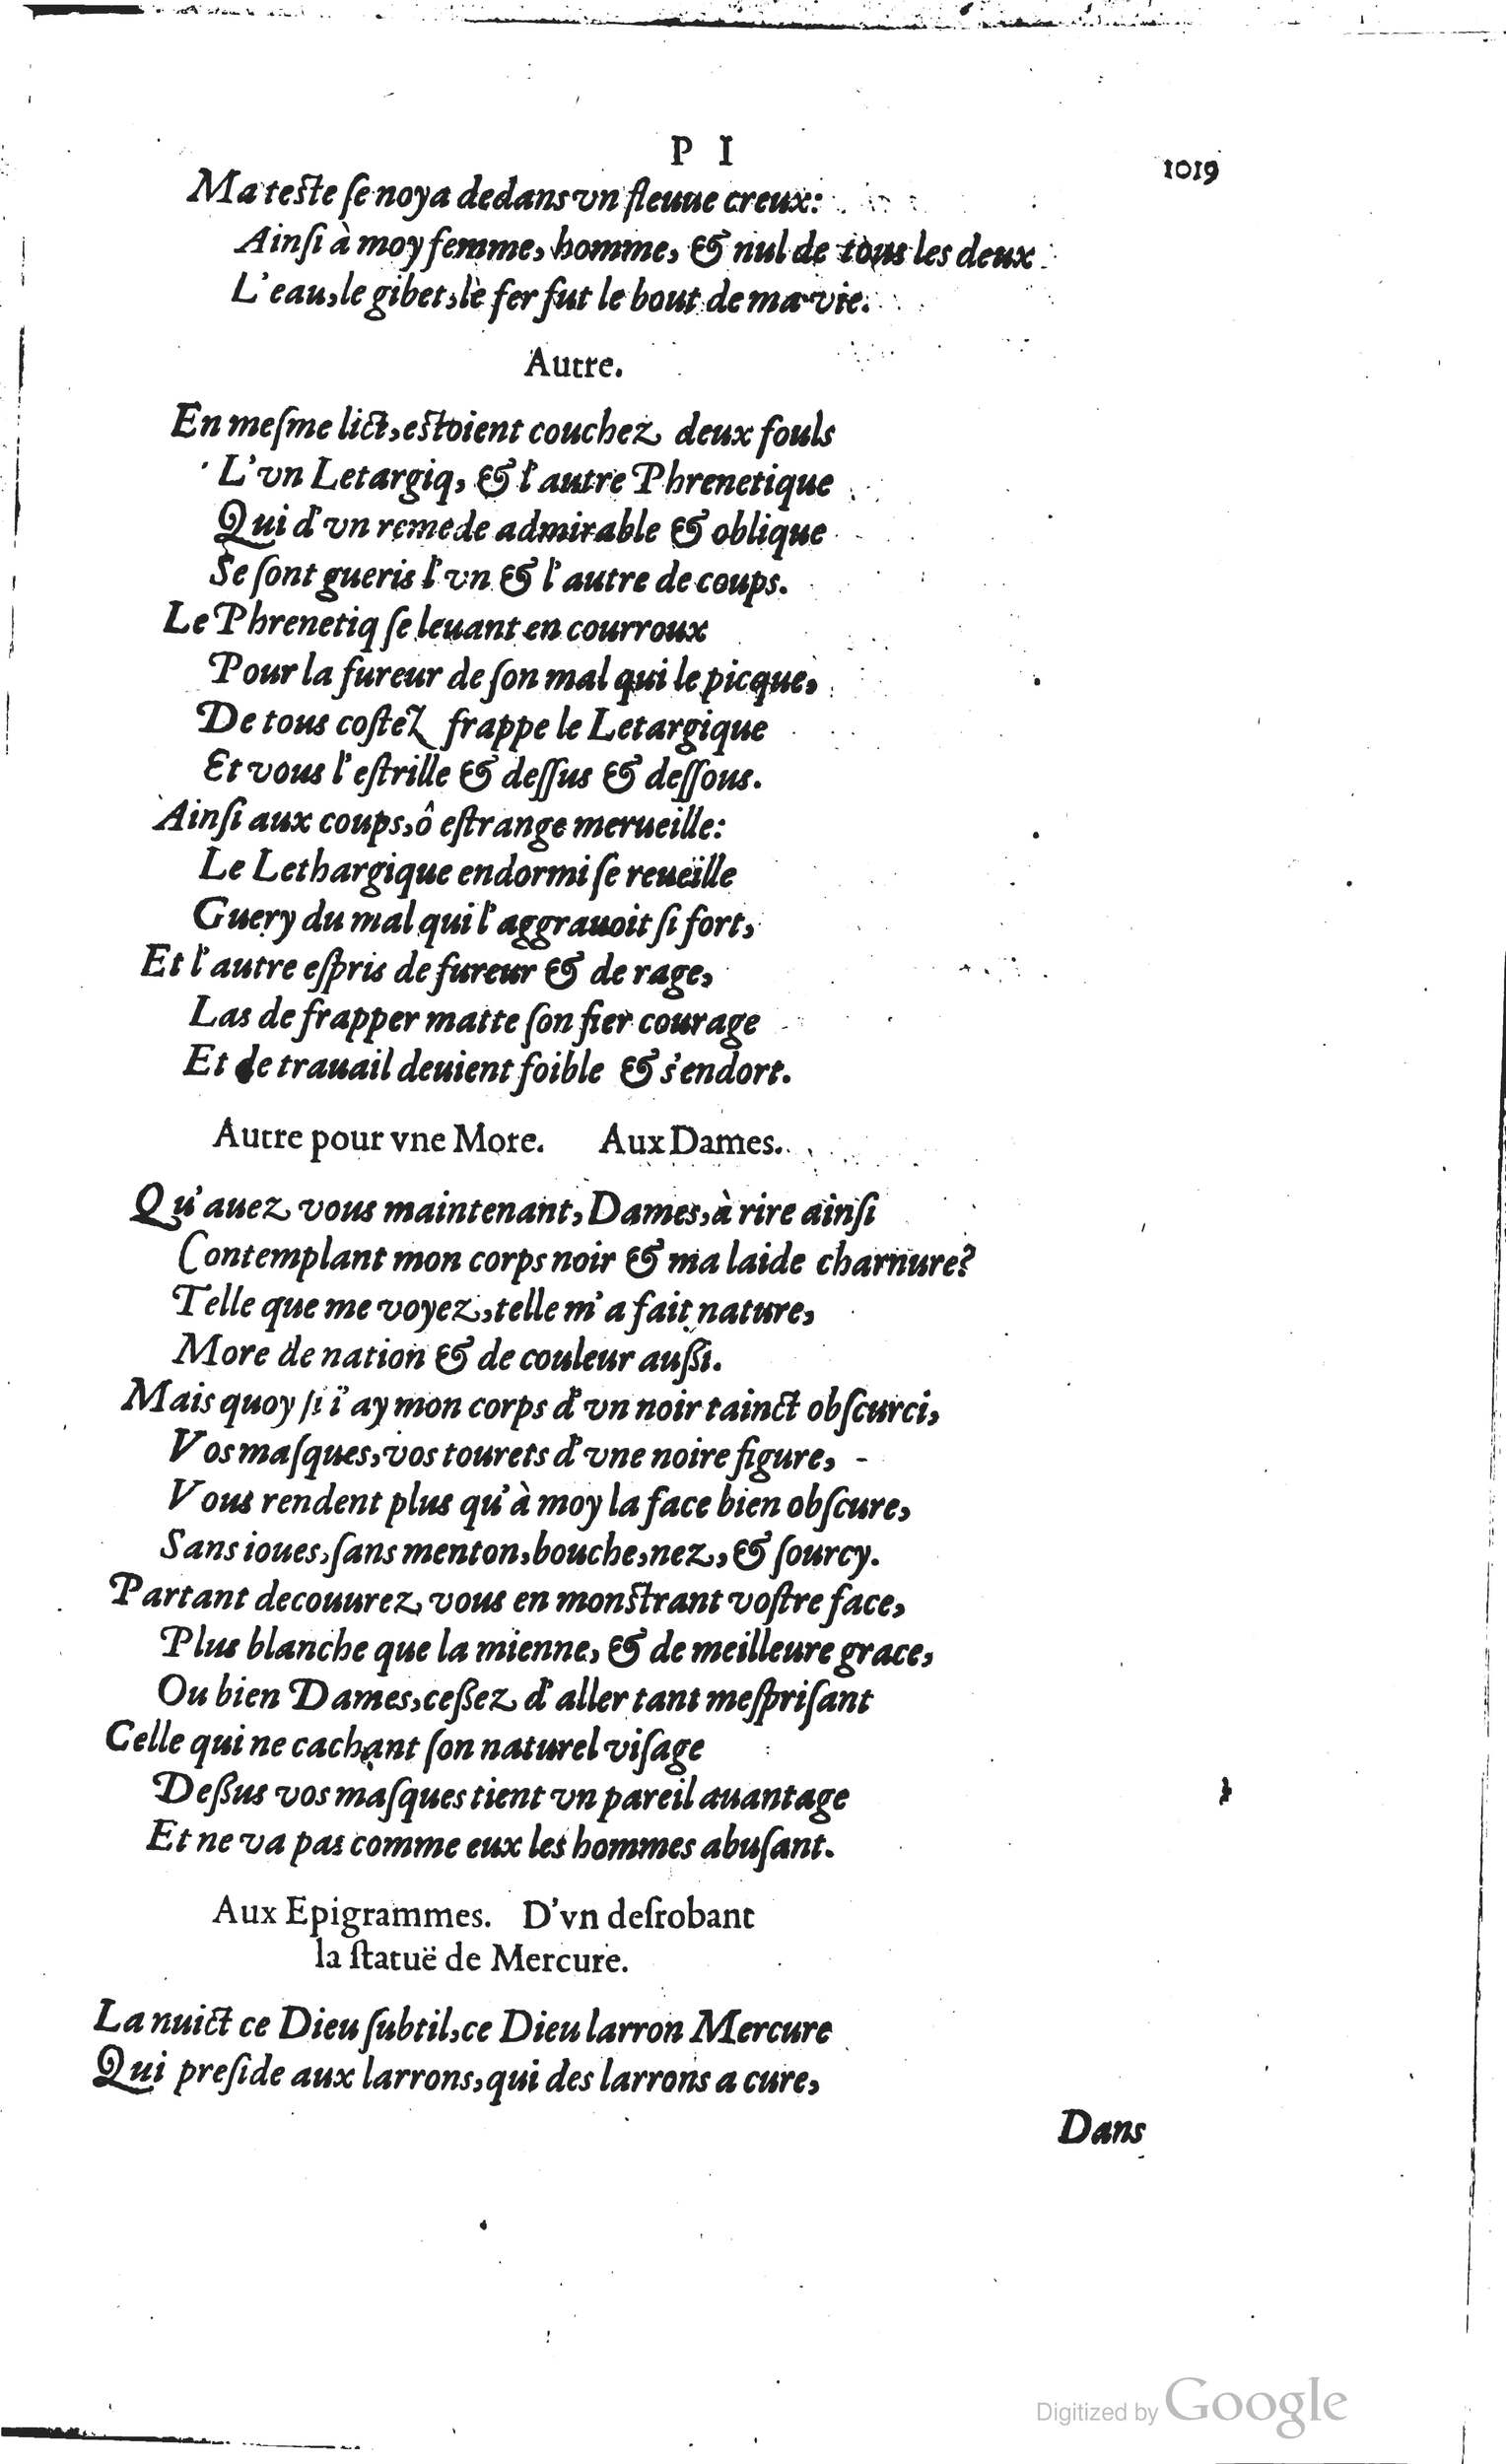 P I
1019
Ma teste ſe noya dedans vn fleuue creux:
Ainſi à moy femme, homme, & nul de tous les deux
L'eau, le gibet, le fer fut le bout de ma vie.
Autre.
En meſme lict, estoient couchez deux fouls
L'vn Letargiq, & l'autre Phrenetique
Qui d'vn remede admirable & oblique
Se ſont gueris l'vn & l'autre de coups.
Le Phrenetiq ſe leuant en courroux
Pour la fureur de ſon mal qui le picque,
De tous coſtez frappe le Letargique
Et vous l'eſtrille & deſſus & deſſous.
Ainſi aux coups, ô eſtrange merueille:
Le Lethargique endormi ſe reueïlle
Guery du mal qui l'aggrauoit ſi fort,
Et l'autre eſpris de fureur & de rage,
Las de frapper matte ſon fier courage
Et de trauail deuient foible & s'endort.
Autre pour vne More. Aux Dames.
Qu'auez vous maintenant, Dames, à rire ainſi
Contemplant mon corps noir & ma laide charnure?
Telle que me voyez, telle m'a fait nature,
More de nation & de couleur auſſi.
Mais quoy ſi i'ay mon corps d'vn noir tainct obſcurci,
Vos maſques, vos tourets d'vne noire figure,
Vous rendent plus qu'à moy la face bien obſcure,
Sans ioues, ſans menton, bouche, nez, & ſourcy.
Partant decouurez vous en monstrant voſtre face,
Plus blanche que la mienne, & de meilleure grace,
Ou bien Dames, ceſſez d'aller tant meſpriſant
Celle qui ne cachant ſon naturel viſage
Deſſus vos maſques tient vn pareil auantage
Et ne va pas comme eux les hommes abuſant.
Aux Epigrammes. D'vn deſrobant
la ſtatuë de Mercure.
La nuict ce Dieu ſubtil, ce Dieu larron Mercure
Qui preſide aux larrons, qui des larrons a cure,
Dans
Digitized by Google